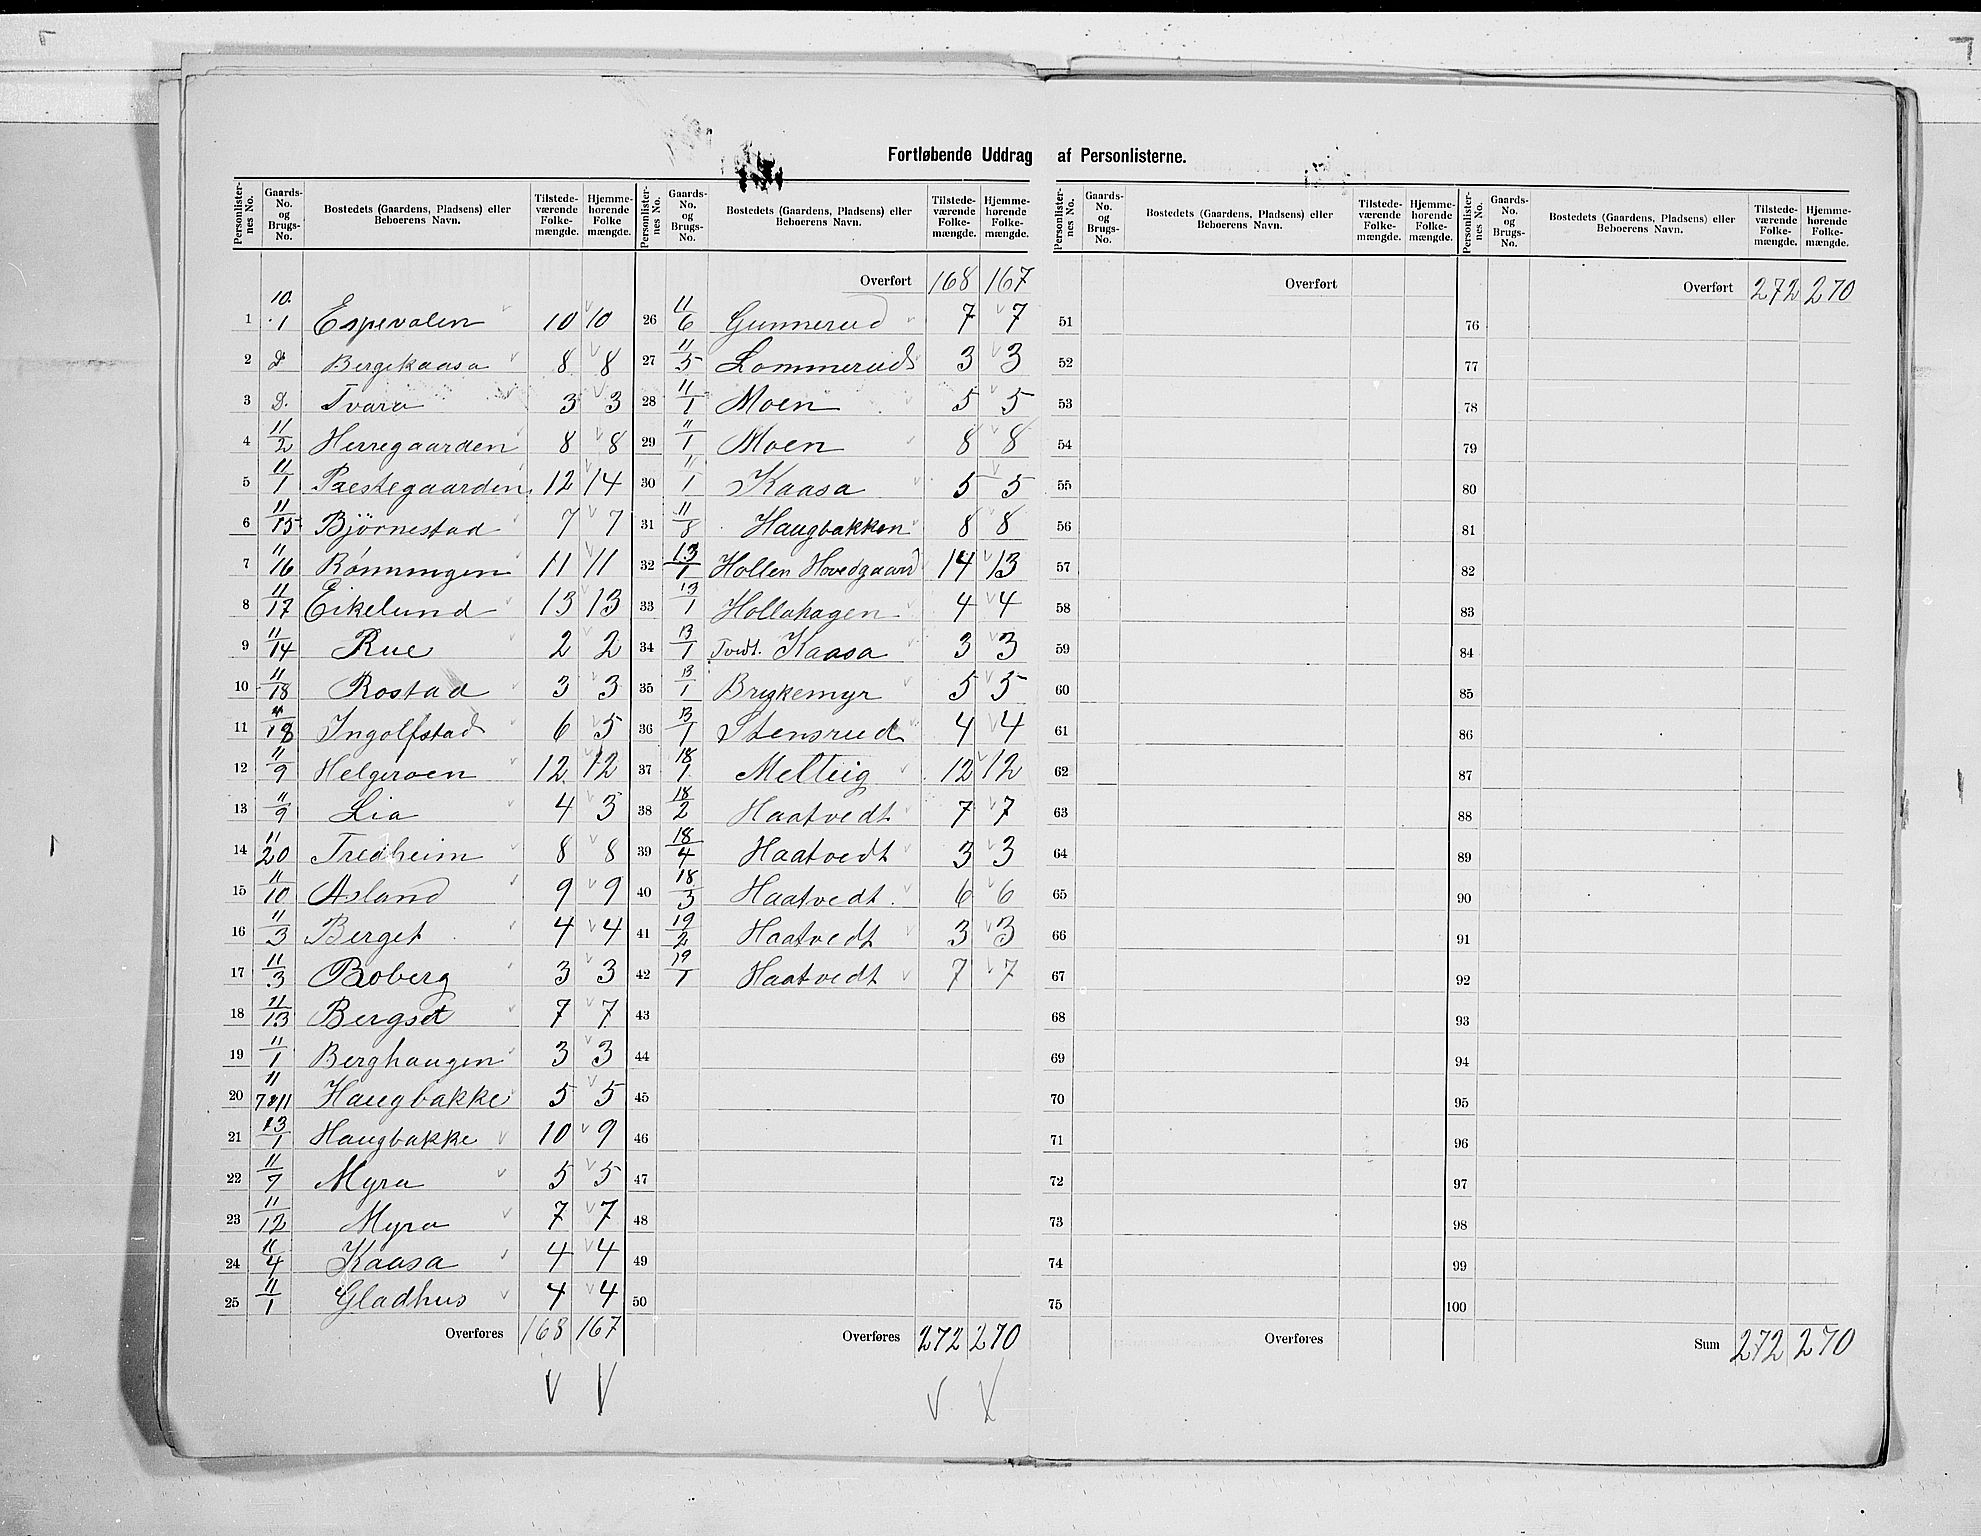 Fortløbende Uddrag af Personlisterne.
Personlisternes No. Gaards-No. og Brugs-No. Bostedets (Gaardens, Pladsens) eller Beboerens Navn. Tilstedeværende Folkemængde. Hjemmehørende Folkemængde.
1 10/1 Espevalen 10 10
2 D Bergekaasa 8 8
3 D. Tvara 3 3
4 11/2 Herregaarden 8 8
5 11/1 Præstegaarden 12 14
6 11/15 Bjørnestad 7 7
7 11/16 Rønningen 11 11
8 11/17 Eikelund 13 13
9 11/14 Rue 2 2
10 11/18 Rostad 3 3
11 11/18 Ingolfstad 6 5
12 11/9 Helgeroen 12 12
13 11/9 Lia 4 3
14 11/20 Tredheim 8 8
15 11/10 Asland 9 9
16 11/3 Berget 4 4
17 11/3 Boberg 3 3
18 11/13 Bergset 7 7
19 11/1 Berghaugen 3 3
20 11/7 & 11 Haugbakke 5 5
21 13/1 Haugbakke 10 9
22 11/7 Myra 5 5
23 11/12 Myra 7 7
24 11/4 Kaasa 4 4
25 11/1 Gladhus 4 4
Overføres 168 167
Personlisternes No. Gaards-No. og Brugs-No. Bostedets (Gaardens, Pladsens) eller Beboerens Navn. Tilstedeværende Folkemængde. Hjemmehørende Folkemængde.
Overført 168 167
26 11/6 Gunnerud 7 7
27 11/5 Lommerud 3 3
28 11/1 Moen 5 5
29 11/1 Moen 8 8
30 11/1 Kaasa 5 5
31 11/8 Haugbakken 8 8
32 13/1 Hollen Hovedgaard 14 13
33 13/1 Hollahagen 4 4
34 13/1 Tvedt. Kaasa 3 3
35 13/1 Bryskemyr 5 5
36 13/1 Stensrud 4 4
37 18/1 Melteig 12 12
38 18/2 Haatvedt 7 7
39 18/4 Haatvedt 3 3
40 18/3 Haatvedt 6 6
41 19/2 Haatvedt 3 3
42 19/1 Haatvedt 7 7
43
44
45
46
47
48
49
50
Overføres 272 270
Personlisternes No. Gaards-No. og Brugs-No. Bostedets (Gaardens, Pladsens) eller Beboerens Navn. Tilstedeværende Folkemængde. Hjemmehørende Folkemængde.
Overført
51
52
53
54
55
56
57
58
59
60
61
62
63
64
65
66
67
68
69
70
71
72
73
74
75
Overføres
Personlisternes No. Gaards-No. og Brugs-No. Bostedets (Gaardens, Pladsens) eller Beboerens Navn. Tilstedeværende Folkemængde. Hjemmehørende Folkemængde.
Overført 272 270
76
77
78
79
80
81
82
83
84
85
86
87
88
89
90
91
92
93
94
95
96
97
98
99
100
Sum 272 270